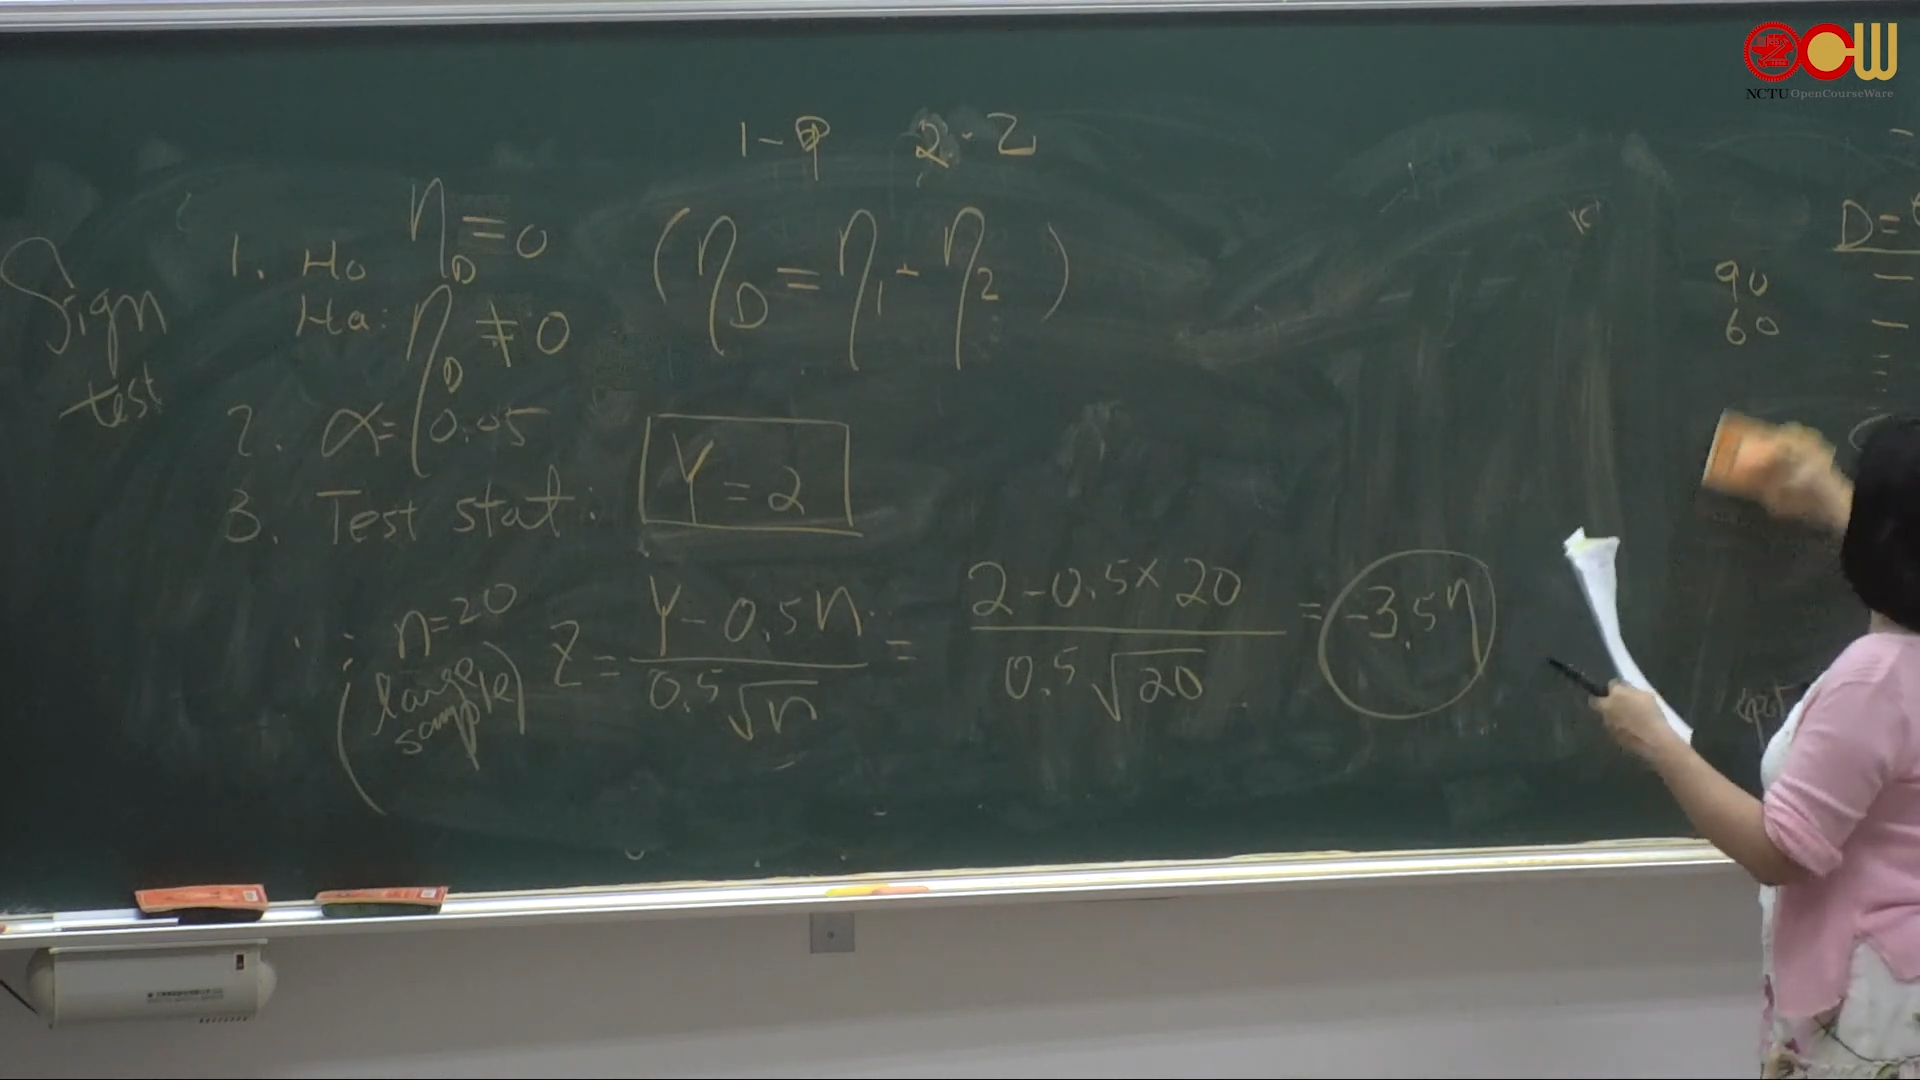 NCTU OpenCourseWare
1-φ 2-2
Sign test
1. Ho η_D = 0 (η_D = η_1 - η_2)
Ha: η_D ≠ 0
2. α = 0.05
3. Test stat: Y = 2
∵ n=20 (large sample) Z = (Y - 0.5n) / (0.5√n) = (2 - 0.5×20) / (0.5√20) = -3.5η
D=
90
60